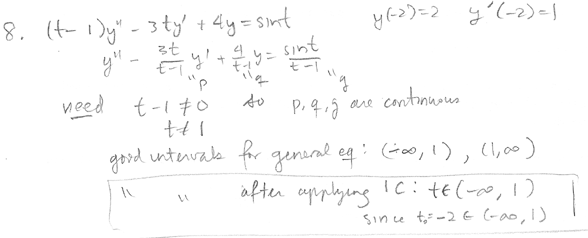 8. (t-1)y'' - 3ty' + 4y = sint y(-2)=2 y'(-2)=1
y'' - 3t/(t-1) y' + 4/(t-1) y = sint/(t-1)
"p "q "g
need t-1≠0 so p, q, g are continuous
t≠1
good intervals for general eq: (-∞, 1), (1, ∞)
" " after applying IC: t∈(-∞, 1)
since t₀=-2 ∈ (-∞, 1)